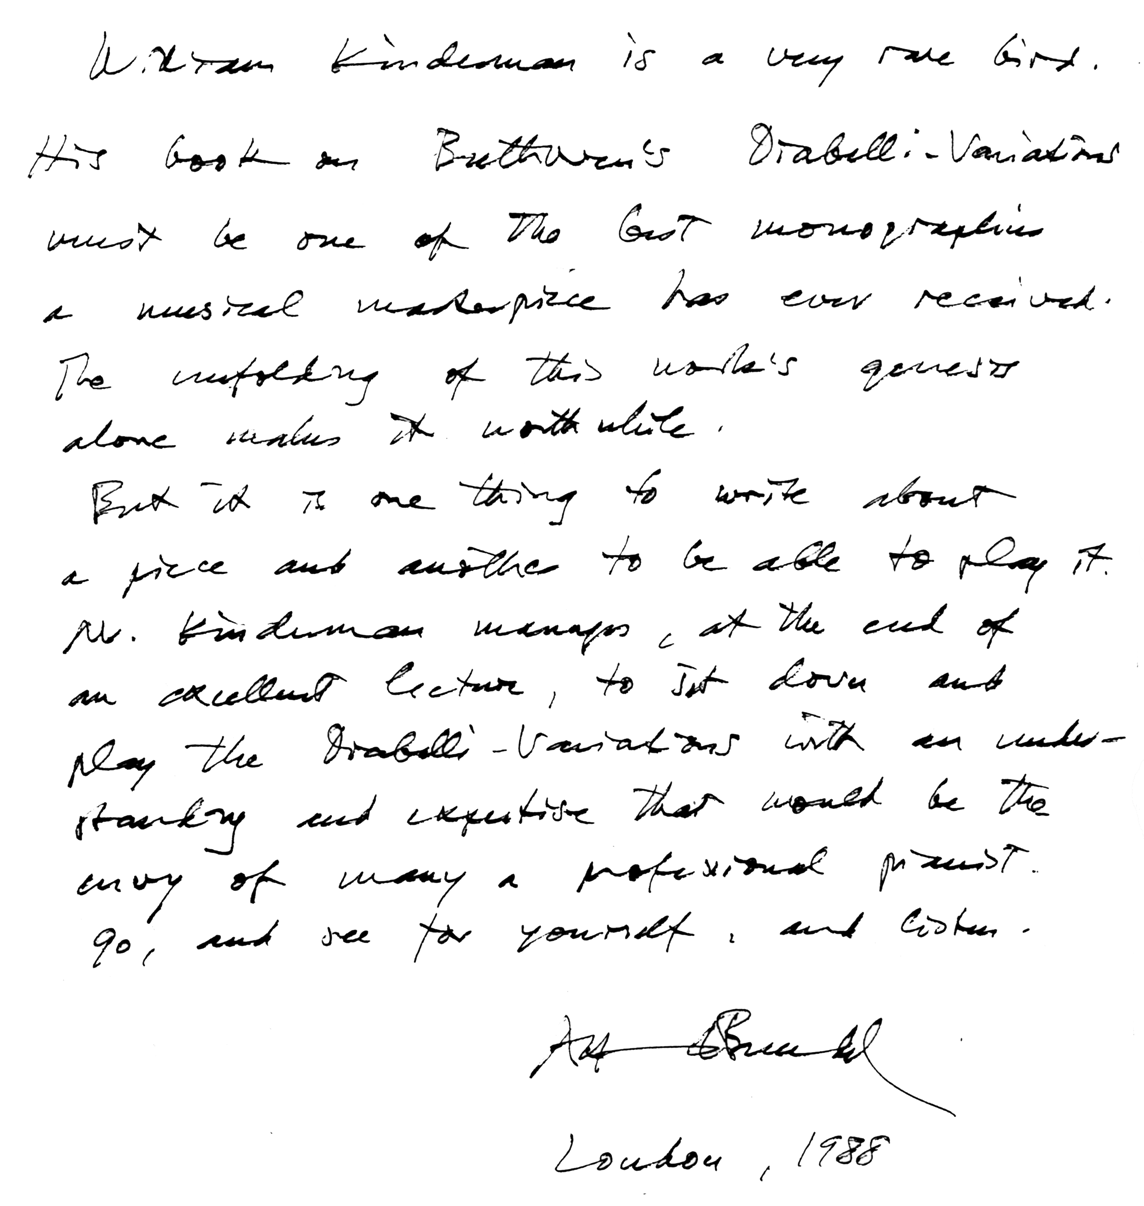 William Kinderman is a very rare bird.
His book on Beethoven's Diabelli-Variations
must be one of the best monographies
a musical masterpiece has ever received.
The unfolding of this work's genesis
alone makes it worthwhile.
But it is one thing to write about
a piece and another to be able to play it.
Mr. Kinderman manages, at the end of
an excellent lecture, to sit down and
play the Diabelli-Variations with an under-
standing and expertise that would be the
envy of many a professional pianist.
Go, and see for yourself, and listen.
Alfred Brendel
London, 1988